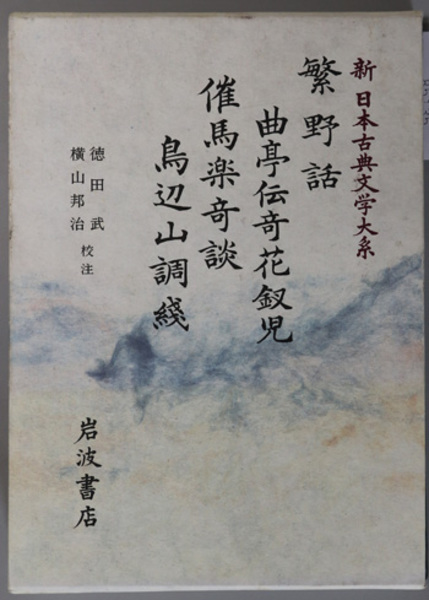 新 日本古典文学大系
繁野話
曲亭伝奇花釵児
催馬楽奇談
鳥辺山調綫
徳田武
横山邦治 校注
岩波書店